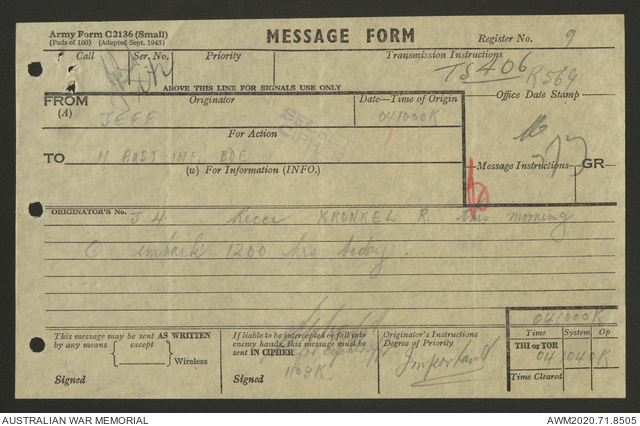 Army Form C2136 (Small)
(Pads of 100) (Adapted Sept. 1943)
MESSAGE FORM
Register No. 9
Call Ser. No. Priority Transmission Instructions
TS 406 R569
ABOVE THIS LINE FOR SIGNALS USE ONLY
FROM Originator Date—Time of Origin Office Date Stamp
(A) JEFF 041000K
For Action
TO 11 AUST INF BDE
(W) For Information (INFO.) Message Instructions GR
ORIGINATOR'S No. J 4 Recce KRONKEL R. this morning
embark 1200 hrs today.
041000K
This message may be sent AS WRITTEN
by any means except
Wireless
Signed
If liable to be intercepted or fall into
enemy hands, this message must be
sent IN CIPHER
1103K
Signed
Originator's Instructions
Degree of Priority
Important
Time System Op
THI or TOR
041040K
Time Cleared
AUSTRALIAN WAR MEMORIAL AWM2020.71.8505